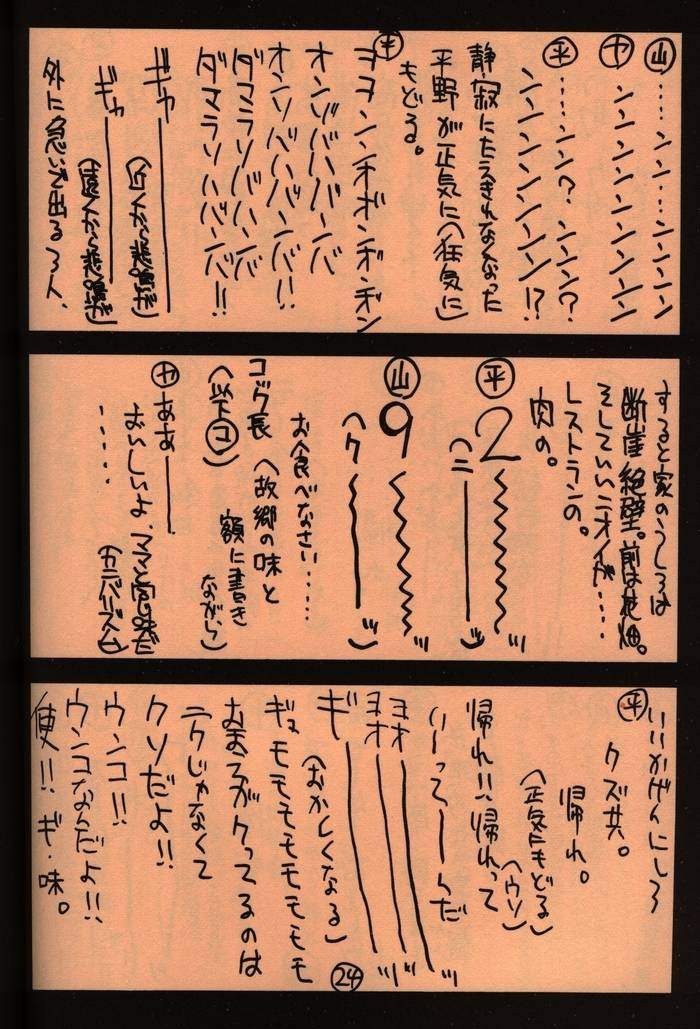 山 ……ンン……ンンンンン
ヤ ンンンンンンンンン
平 ……ンン？ンンン？
ンンンンンンンン!?
静寂にたえきれなくなった
平野が正気に（狂気に）
もどる。
平 ヨヨンンチボンギ・ギン
オンゾバババーバ
オンソバハバーバ!!
ダマラソバハーバ
ダマラソハバーバ!!
ギャ――――
（近くから悲鳴が）
ギャ――――
（遠くから悲鳴が）
外に急いで出る3人、
すると家のうしろは
断崖絶壁。前は花畑。
そしていいニオイが……
レストランの。
肉の。
平 2〜〜〜〜ッ
（ニ――――ッ）
山 9〜〜〜〜ッ
（ク――――ッ）
お食べなさい……
コック長（故郷の味と
額に書き
ながら）
（以下コ）
ヤ ああ――。
おいしいよ、ママと宮の味だ
……
（カニバリズム）
平 いいかげんにしろ
クズ共。
帰れ。
（正気にもどる）
（ウソ）
帰れ!!帰れって
いーってーーんだ
ヨオ――――ッ
ヨオ――――ッ
ギ――――ッ
（おかしくなる）
ギョモモモモモモモモ
おまえがクってるのは
ニクじゃなくて
クソだよ!!
ウンコ!!
ウンコなんだよ!!
便!!ギ・味。
24